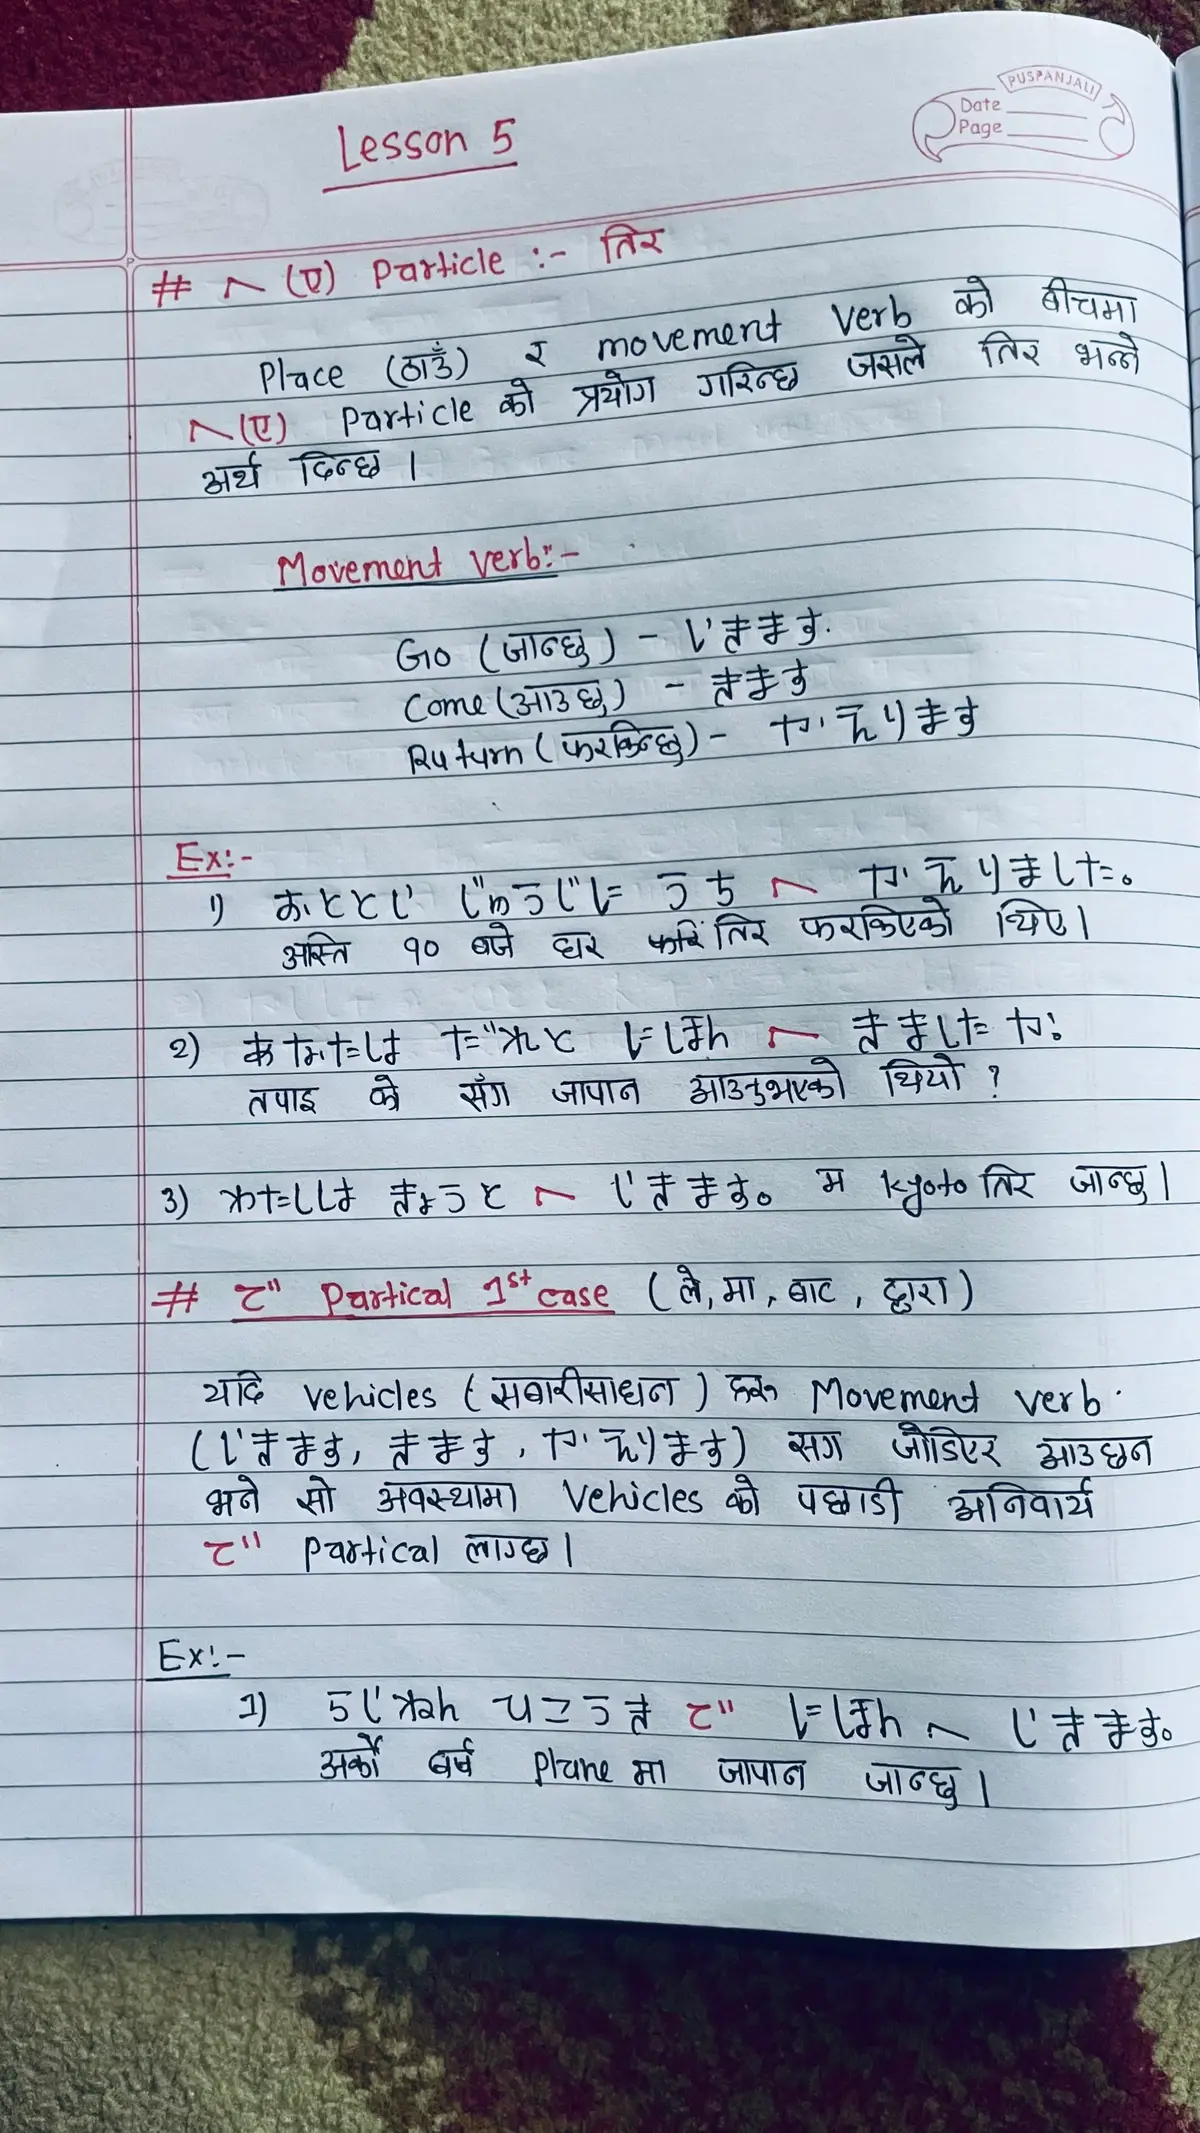 PUSPANJALI
Date
Page
Lesson 5
# へ (ए) Particle :- तिर
Place (ठाउँ) र movement verb को बीचमा
へ(ए) Particle को प्रयोग गरिन्छ जसले तिर भन्ने
अर्थ दिन्छ ।
Movement verb:-
Go (जान्छु) - いきます.
Come (आउछु) - きます
Ruturn (फरकिन्छु) - かえります
Ex:-
1) おととい じゅうじに うち へ かえりました。
अस्ति १० बजे घर तिर फरकिएको थिए।
2) あなたは だれと にほん へ きましたか?
तपाइ को सँग जापान आउनुभएको थियो ?
3) わたしは きょうと へ いきます。 म kyoto तिर जान्छु।
# で Partical 1st case (ले, मा, बाट, द्वारा)
यदि vehicles (सबारीसाधन) हरु Movement verb.
(いきます, きます, かえります) सग जोडिएर आउछन
भने सो अवस्थामा Vehicles को पछाडी अनिवार्य
で Partical लाग्छ।
Ex:-
1) らいねん ひこうき で にほん へ いきます。
अर्को बर्ष Plane मा जापान जान्छु ।